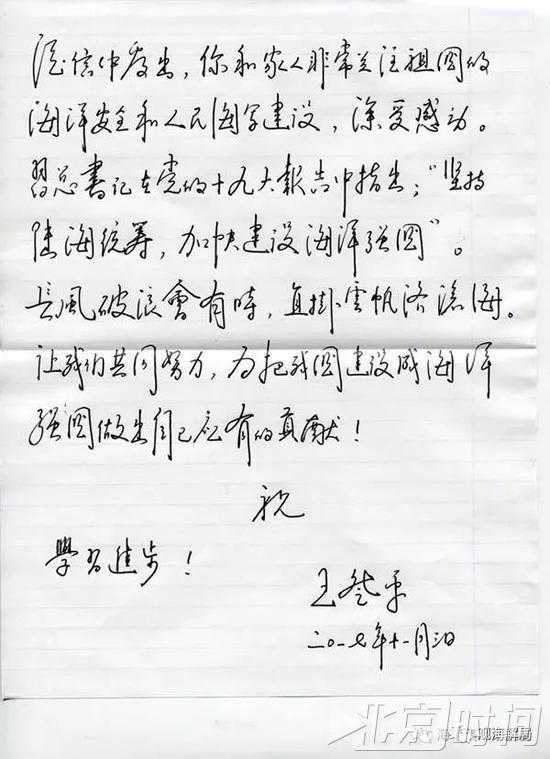 從信中看出，你和家人非常关注祖國的
海洋安全和人民海军建设，深受感动。
習总書记在党的十九大報告中指出："坚持
陆海统筹，加快建设海洋强國"。
長風破浪會有時，直掛雲帆济滄海。
让我们共同努力，为把我國建设成海洋
强國做出自己应有的貢献！
祝
學習進步！
王登平
二〇一七年十一月三日
北京时间
观海解局